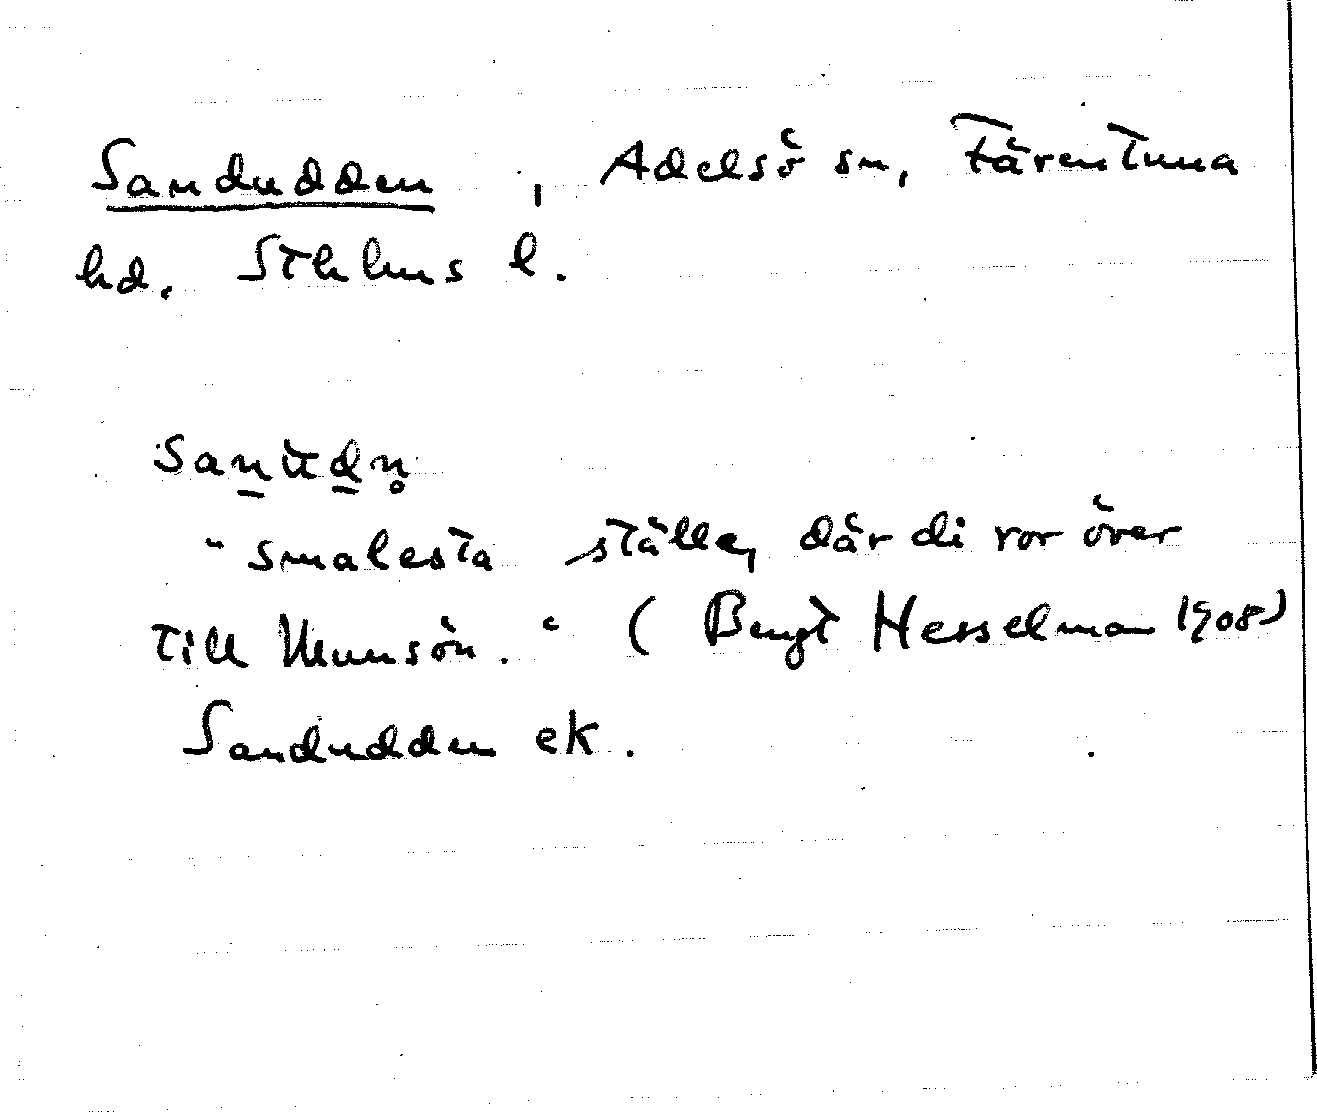 Sandudden, Adelsö sn, Färentuna
hd. Sthlms l.
"smalesta ställe, där di ror över
till Munsön." (Bengt Hesselman 1908)
Sandudden ek.